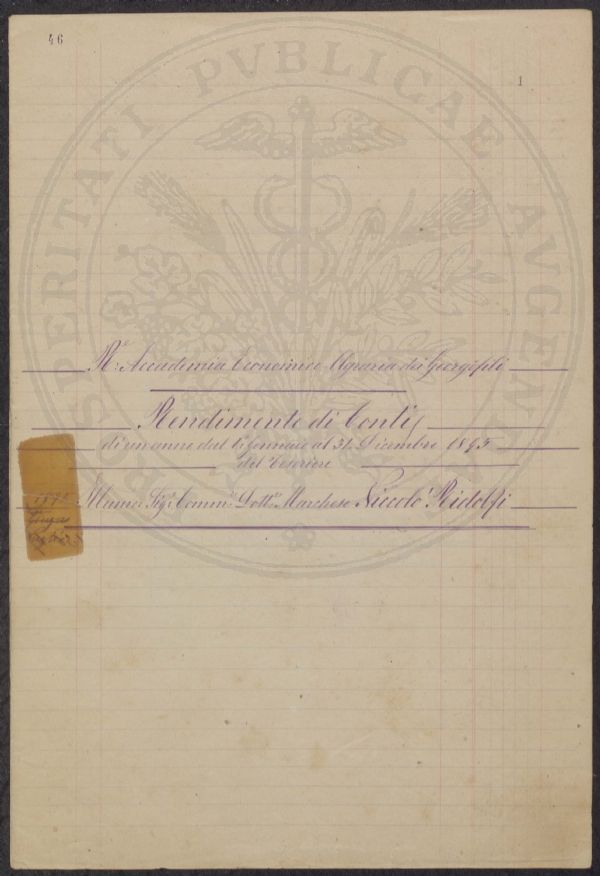 46
1
PROSPERITATI PVBLICAE AVGENDAE
R.a Accademia Economico Agraria dei Georgofili
Rendimento di Conti
di un anno dal 1.o Gennaio al 31. Dicembre 1895
del Tesoriere
Illumo: Sigr. Comm.re Dott.re Marchese Niccolò Ridolfi